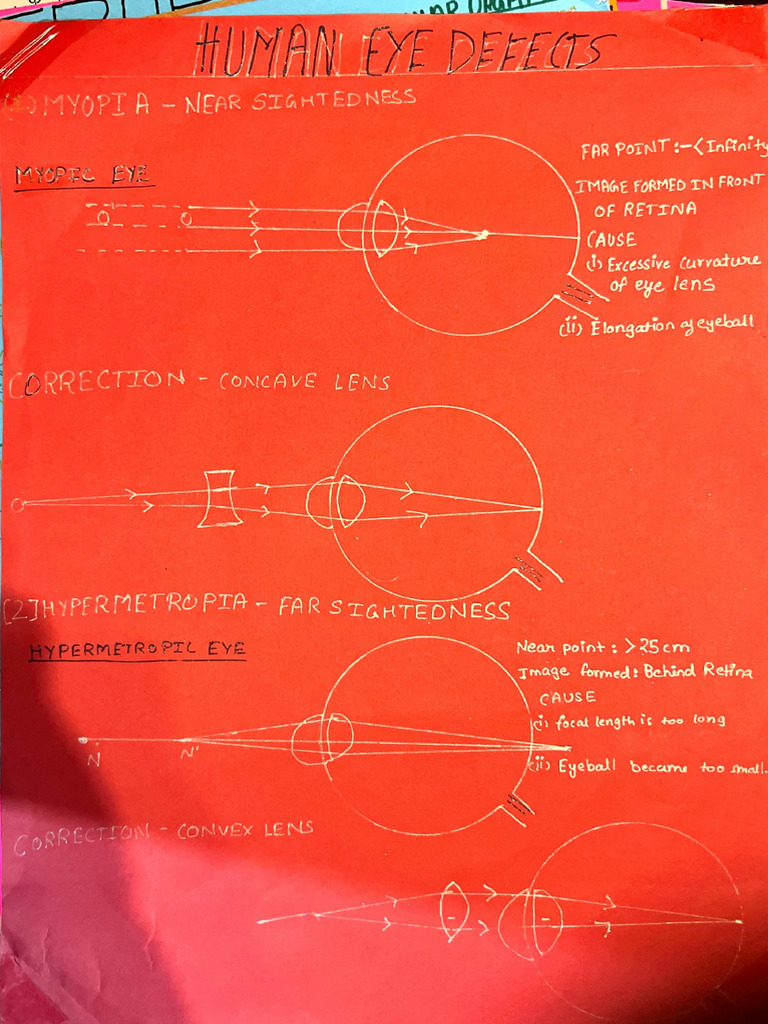 HUMAN EYE DEFECTS
(1) MYOPIA - NEAR SIGHTEDNESS
MYOPIC EYE
FAR POINT :- < Infinity
IMAGE FORMED IN FRONT
OF RETINA
CAUSE
(i) Excessive curvature
of eye lens
(ii) Elongation of eyeball
O'
O
CORRECTION - CONCAVE LENS
O'
[2] HYPERMETROPIA - FAR SIGHTEDNESS
HYPERMETROPIC EYE
Near point : > 25 cm
Image formed : Behind Retina
CAUSE
(i) focal length is too long
(ii) Eyeball became too small.
N
N'
CORRECTION - CONVEX LENS